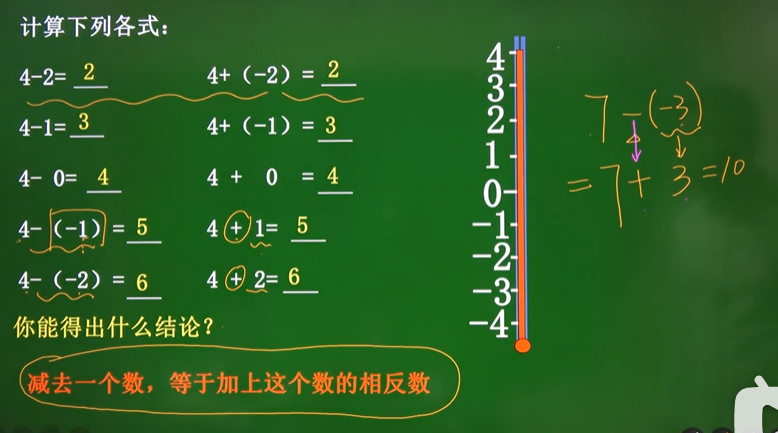 计算下列各式：
4-2= 2 4+（-2）= 2
4-1= 3 4+（-1）= 3
4- 0= 4 4 + 0 = 4
4-（-1）= 5 4 + 1= 5
4-（-2）= 6 4 + 2= 6
你能得出什么结论？
减去一个数，等于加上这个数的相反数
4
3
2
1
0
-1
-2
-3
-4
7-(-3)
=7+3=10